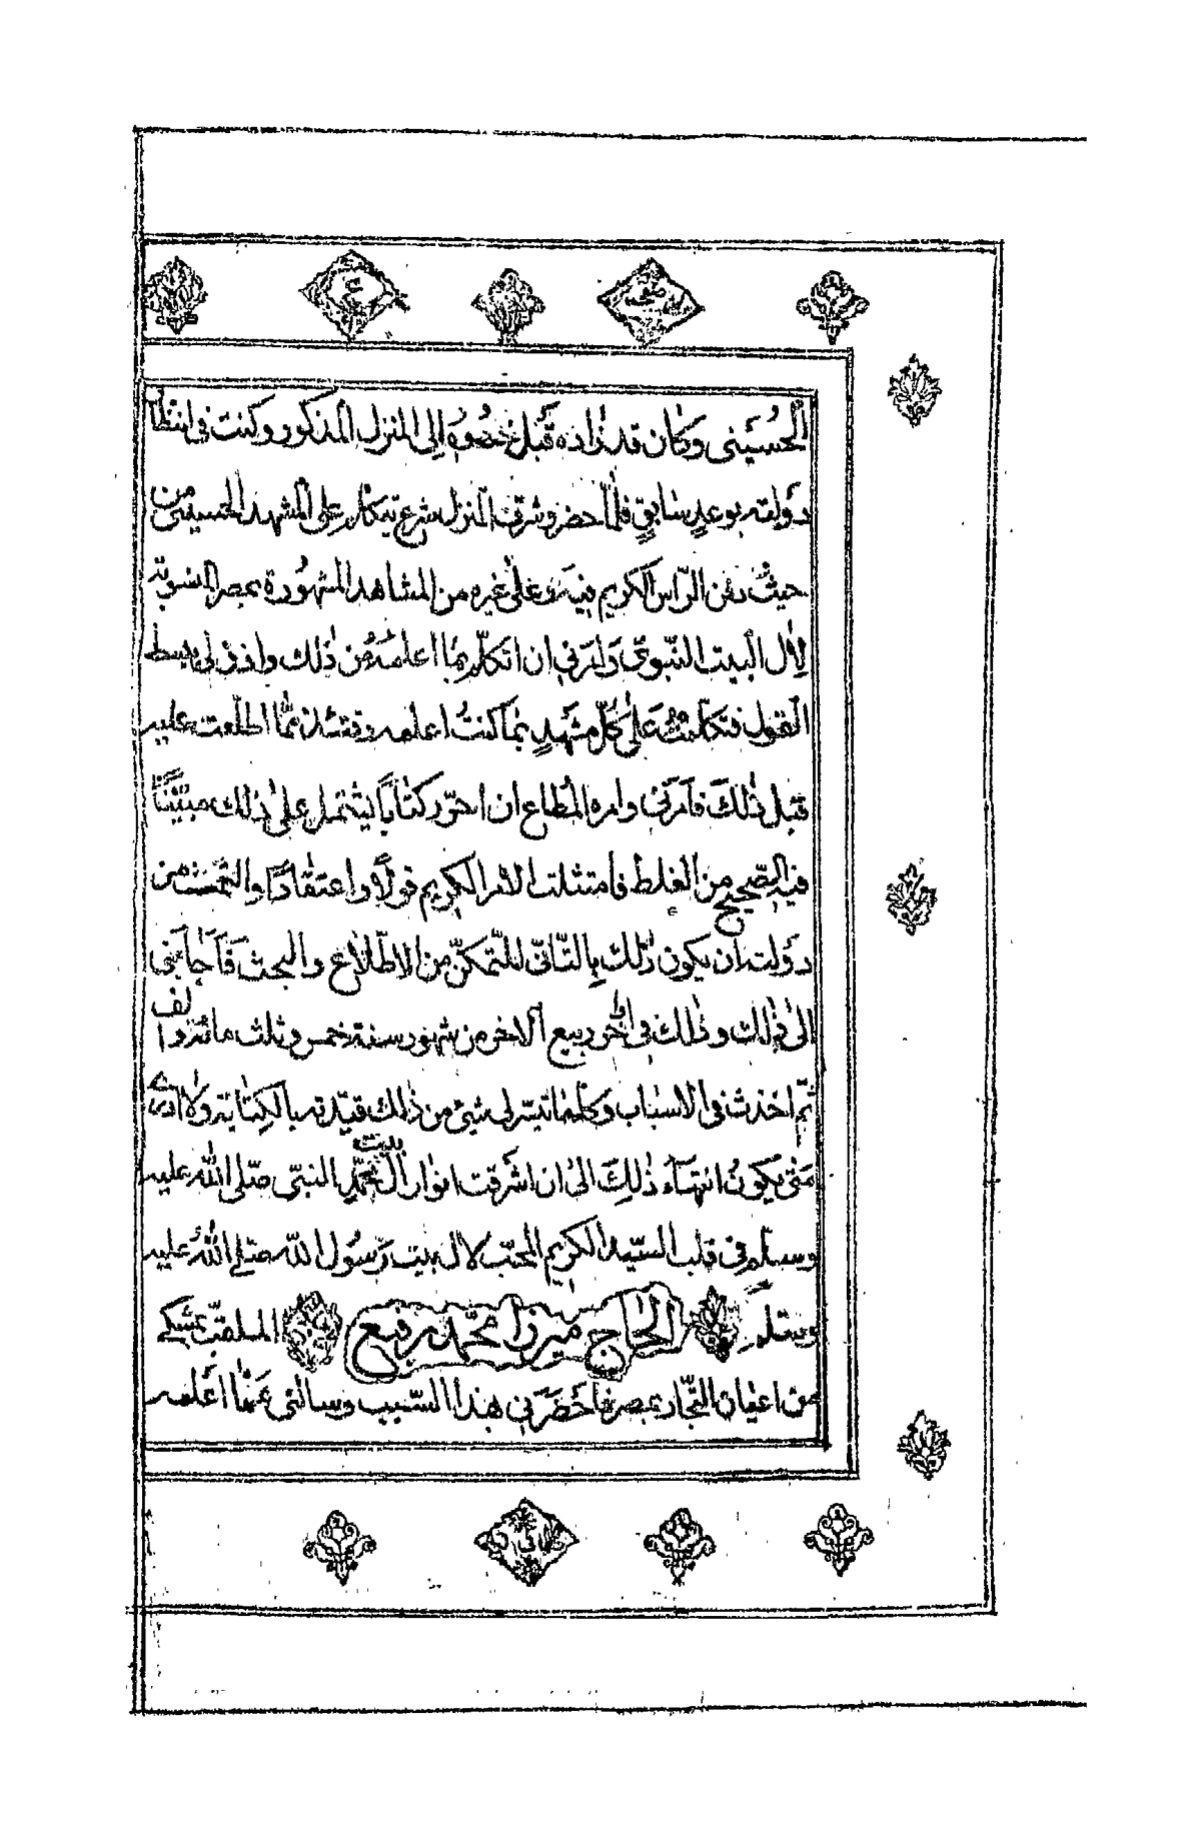 الحُسَيني وكان قد زاده قَبل حضوره الى المنزل المذكور وكنت فى انتظار
دَولته بوعدٍ سابقٍ فلمّا حضر وشرّف المنزل شرع يتكلّم على المشهد الحسينى من
حيث دفن الرّاس الكريم فيه وعَلى غيره من المشاهد المشهورة بمصر المنسوبة
لاٰل البيت النّبوىّ وَامَرَنى ان اتكلّم بما اعلمهُ من ذٰلك واذن لى ببسط
القول فتكلّمتُ عَلٰى كلّ مشهَدٍ بمٰا كنتُ اعلمه وقتئذ ممّا اطّلعت عليه
قبل ذٰلكَ فاَمرَنى وامره المطاع ان احرّر كتٰابًا يشتمل علىٰ ذلك مبيّنًا
فيه الصّحيح من الغلط فامتثلت الامر الكريم قولاً واعتقادًا والتمست من
دَولته ان يكون ذٰلك بِالتّانّى للتّمكّن من الاطّلاع والبحث فَاَجٰابَنى
الىٰ ذٰلك وذٰلك فى اٰخر ربيع الاخر من شهور سنة خمس وثلث مائة والف
ثمّ اخذت فى الاسباب وكلّما تيسّر لى شئ من ذٰلك قيّدته بالكِتٰابة ولا ادرى
مَتٰى يكونُ انتهآء ذٰلِكَ الىٰ ان اشرقت انوار اٰل بيت محمّدٍ النبى صلّى اللّٰه عليه
وسلم فى قلب السّيد الكريم المحبّ لاٰل بيت رَسُول اللّٰه صلى اللّٰهُ عليه
وسلّم الحٰاج ميرزا محمّد رفيع الملقّب بمشكى
من اعيان التجّار بمصر فاَحضَرَنى هذا السّبب وسالنى عَمّا اَعلمه